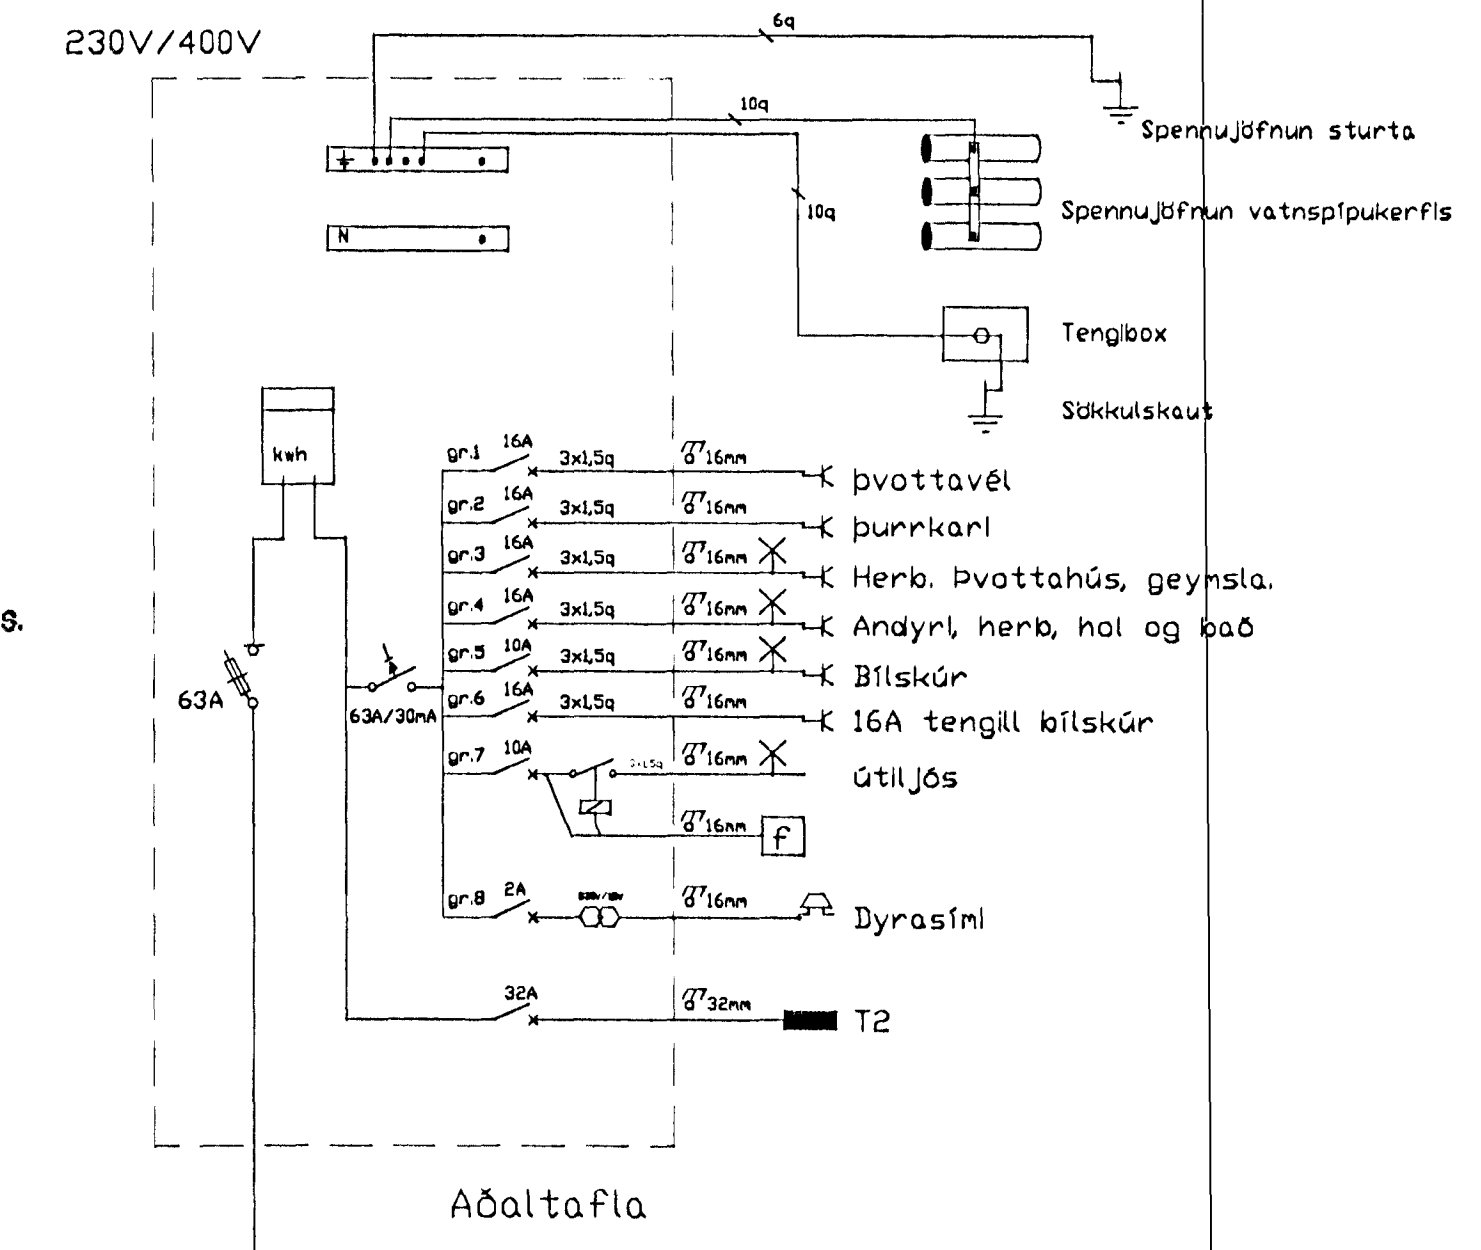 6q
230V/400V
10q
Spennujöfnun sturta
10q
Spennujöfnun vatnspípukerfis
N
Tengibox
Sökkulskaut
kwh
gr.1 16A 3x1,5q 16mm þvottavél
gr.2 16A 3x1,5q 16mm þurrkari
gr.3 16A 3x1,5q 16mm Herb. Þvottahús, geymsla.
gr.4 16A 3x1,5q 16mm Andyri, herb, hol og bað
s.
gr.5 10A 3x1,5q 16mm Bílskúr
63A
63A/30mA
gr.6 16A 3x1,5q 16mm 16A tengill bílskúr
gr.7 10A 3x1,5q 16mm útiljós
16mm f
gr.8 2A 16mm Dyrasími
32A 32mm T2
Aðaltafla